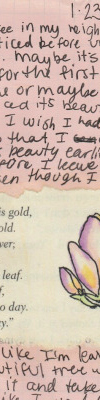 1.23
ee in my neigh
ticed before
. maybe it's
for the first
e or maybe
ced its beau
I wish I had
o that, I
s beauty earli
fore I leave
en though I
is gold,
old.
wer;
leaf.
f,
to day.
y."
like I'm lea
utiful tree
it and take